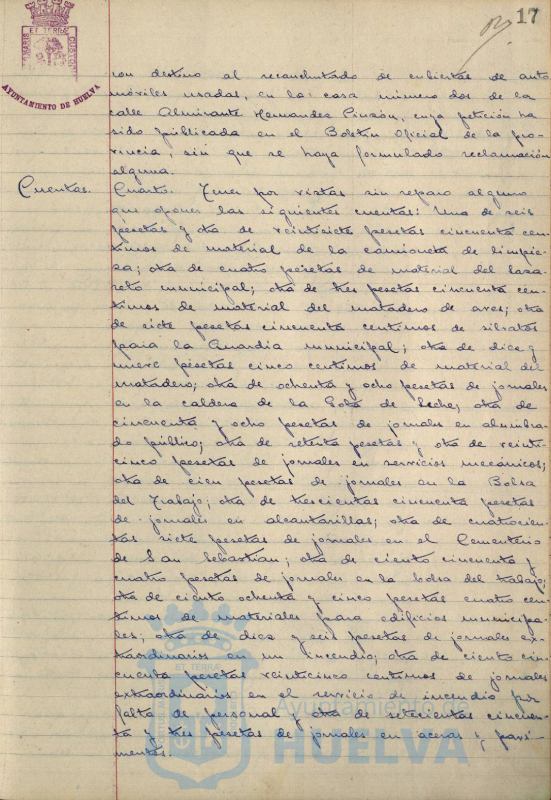 17
PORTUS MARIS ET TERRAE CUSTODIA
AYUNTAMIENTO DE HUELVA
con destino al recauchutado de cubiertas de auto
móviles usadas, en la casa número dos de la
calle Almirante Hernandez Pinzón, cuya petición ha
sido publicada en el Boletín Oficial de la pro-
vincia, sin que se haya formulado reclamación
alguna.
Cuentas. Cuarto. Tener por vistas sin reparo alguno
que oponer las siguientes cuentas: Una de seis
pesetas y otra de veintisiete pesetas cincuenta cen-
timos de material de la camioneta de limpie-
za; otra de cuatro pesetas de material del laza-
reto municipal; otra de tres pesetas cincuenta cen-
timos de material del matadero de aves; otra
de siete pesetas cincuenta centimos de silbatos
para la Guardia municipal; otra de diez y
nueve pesetas cinco centimos de material del
matadero; otra de ochenta y ocho pesetas de jornales
en la caldera de la Gota de Leche; otra de
cincuenta y ocho pesetas de jornales en alumbra-
do público; otra de setenta pesetas y otra de veinti-
cinco pesetas de jornales en servicios mecánicos;
otra de cien pesetas de jornales en la Bolsa
del Trabajo; otra de trescientas cincuenta pesetas
de jornales en alcantarillas; otra de cuatrocien-
tas siete pesetas de jornales en el Cementerio
de San Sebastian; otra de ciento cincuenta y
cuatro pesetas de jornales en la bolsa del trabajo;
otra de ciento ochenta y cinco pesetas cuatro cen-
timos de materiales para edificios municipa-
les; otra de diez y seis pesetas de jornales ex-
traordinarios en un incendio; otra de ciento cin-
cuenta pesetas veinticinco centimos de jornales
extraordinarios en el servicio de incendio por
falta de personal y otra de setecientas cincuen-
ta y tres pesetas de jornales en aceras y pavi-
mentos.
Ayuntamiento de
HUELVA